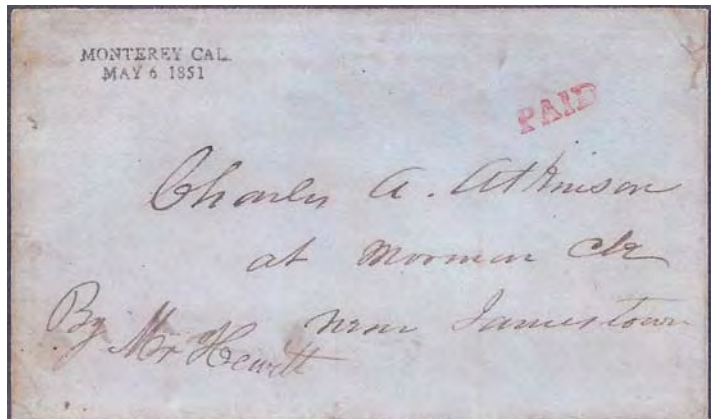 MONTEREY CAL.
MAY 6 1851
PAID
Charles A. Atkinson
at Mormon Ck
near Jamestown
By Mr Hewitt